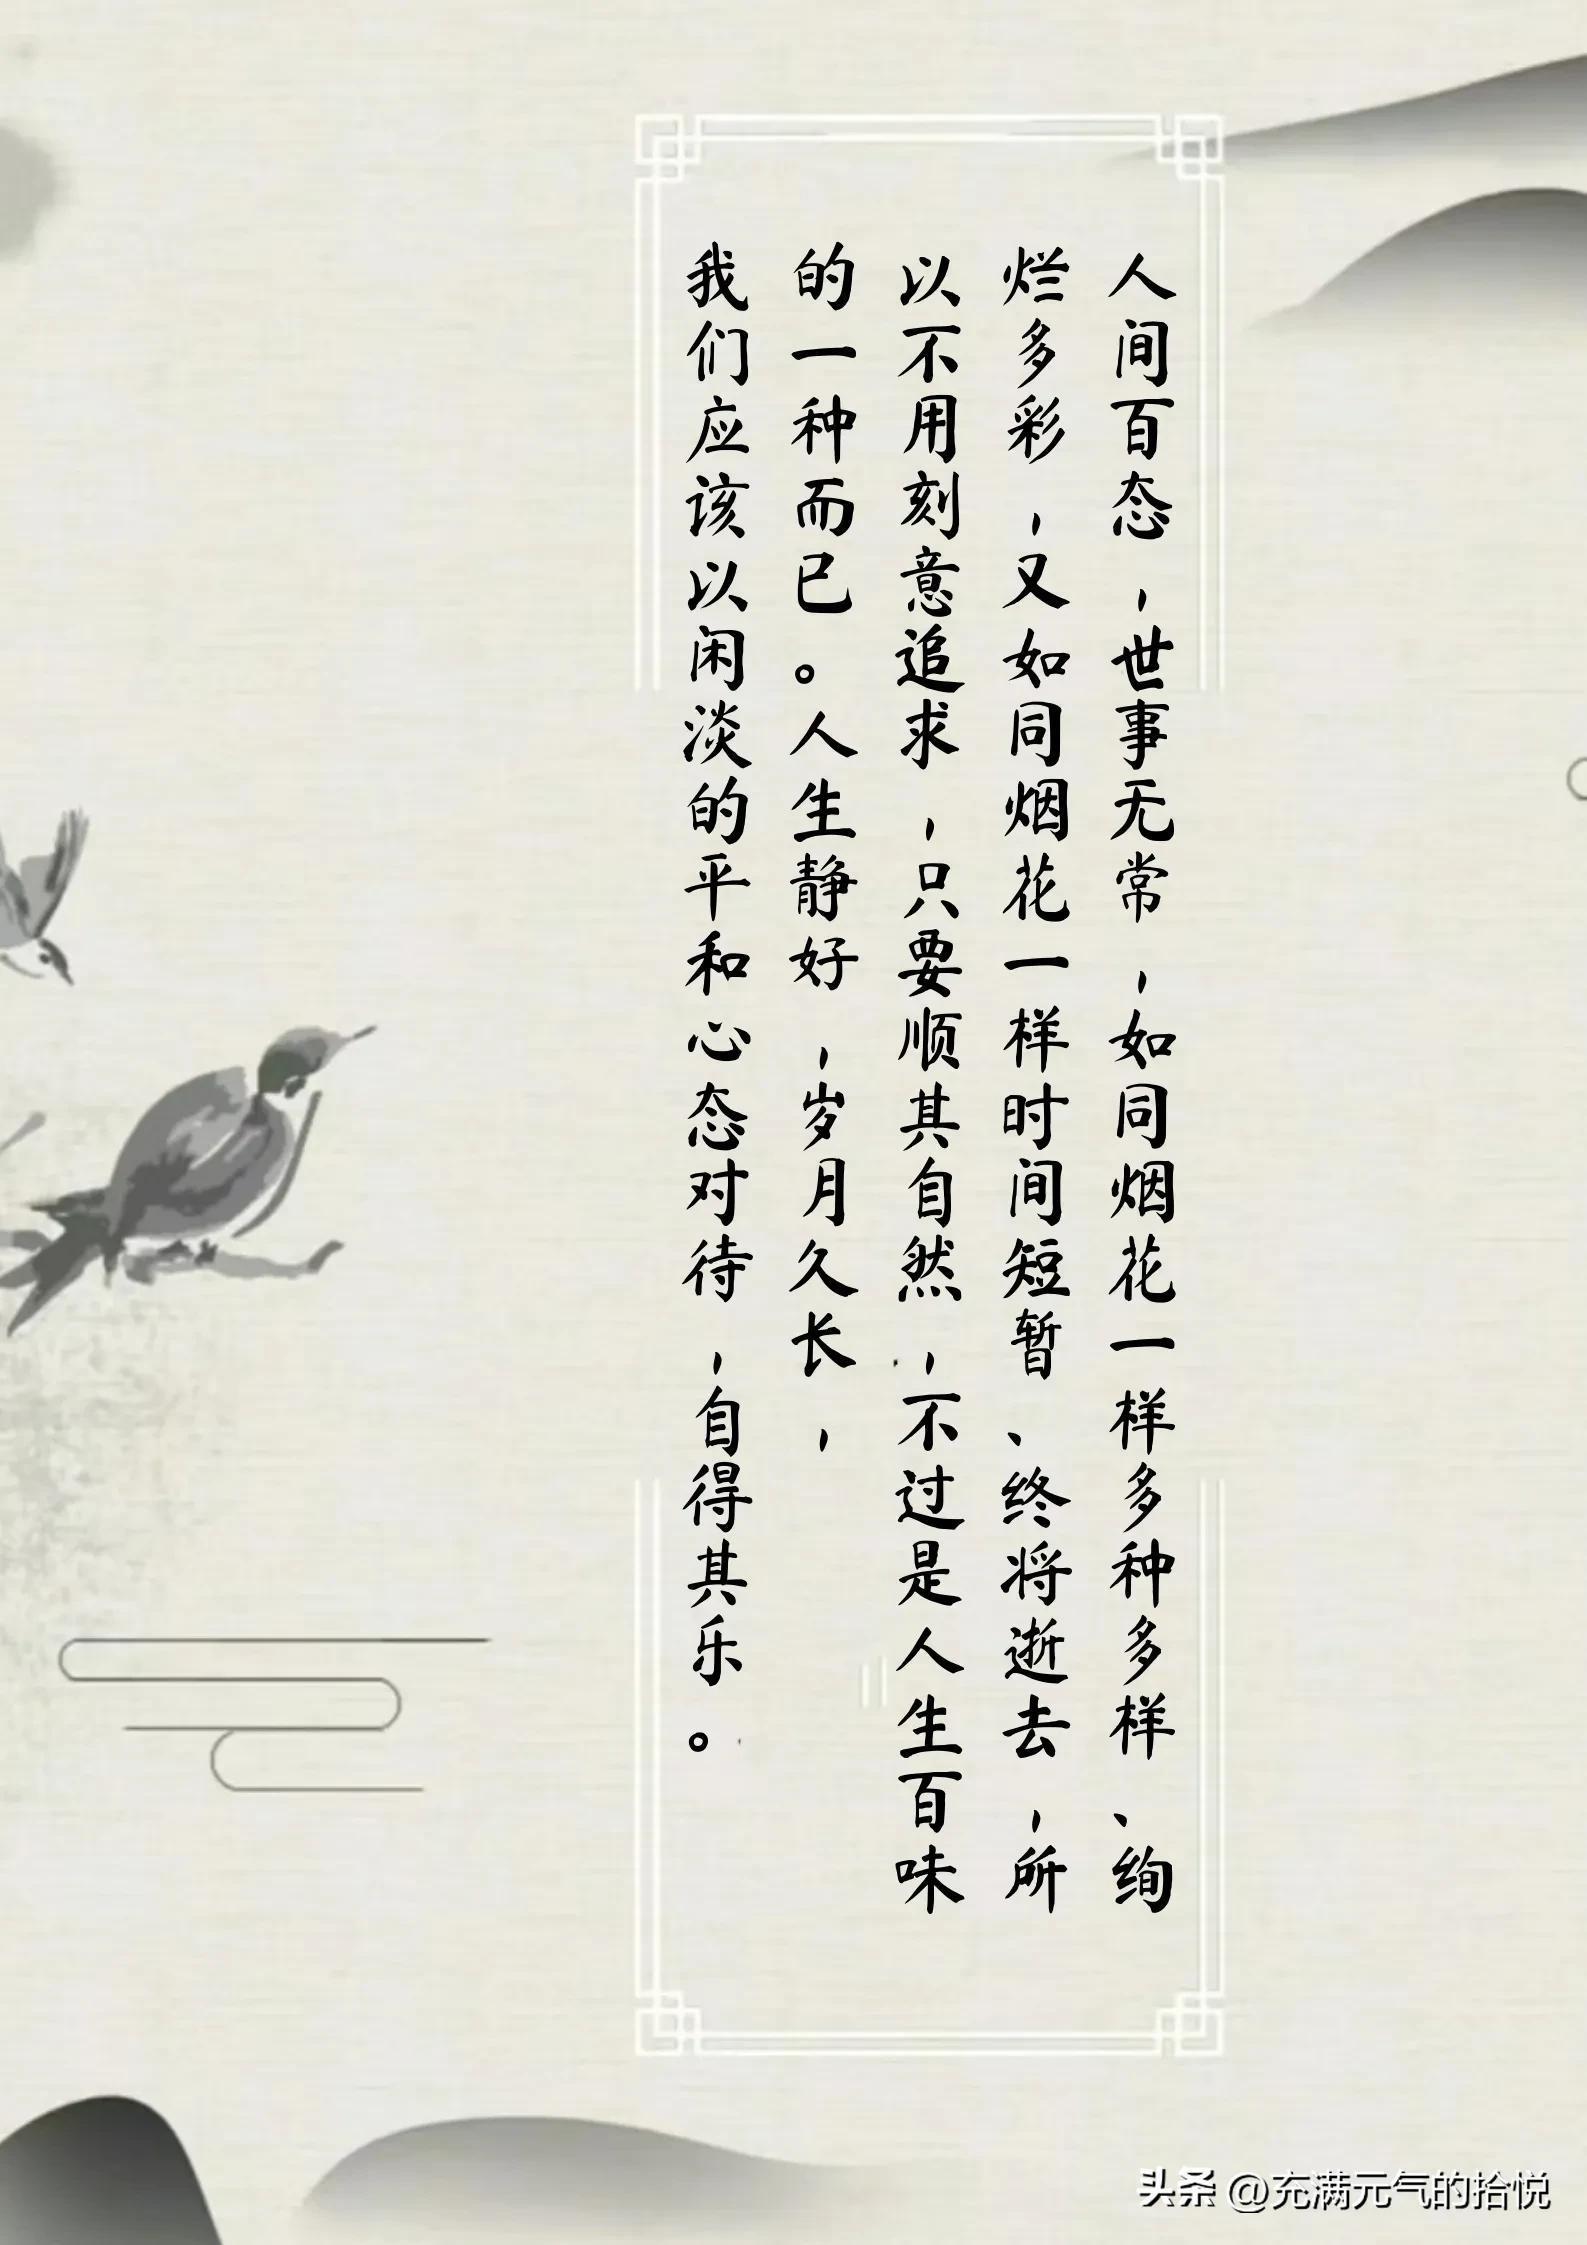 人间百态，世事无常，如同烟花一样多种多样、绚
烂多彩，又如同烟花一样时间短暂、终将逝去，所
以不用刻意追求，只要顺其自然，不过是人生百味
的一种而已。人生静好，岁月久长，
我们应该以闲淡的平和心态对待，自得其乐。
头条 @充满元气的拾悦